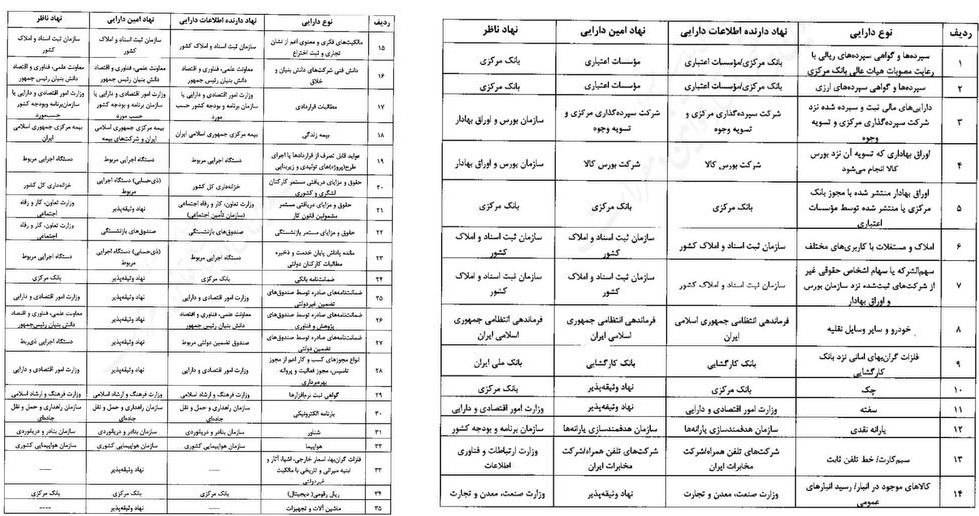 ردیف نوع دارایی نهاد دارنده اطلاعات دارایی نهاد امین دارایی نهاد ناظر
۱ سپرده‌ها و گواهی سپرده‌های ریالی با رعایت مصوبات هیات عالی بانک مرکزی بانک مرکزی/مؤسسات اعتباری مؤسسات اعتباری بانک مرکزی
۲ سپرده‌ها و گواهی سپرده‌های ارزی بانک مرکزی/مؤسسات اعتباری مؤسسات اعتباری بانک مرکزی
۳ دارایی‌های مالی ثبت و سپرده شده نزد شرکت سپرده‌گذاری مرکزی و تسویه وجوه شرکت سپرده‌گذاری مرکزی و تسویه وجوه شرکت سپرده‌گذاری مرکزی و تسویه وجوه سازمان بورس و اوراق بهادار
۴ اوراق بهاداری که تسویه آن نزد بورس کالا انجام می‌شود شرکت بورس کالا شرکت بورس کالا سازمان بورس و اوراق بهادار
۵ اوراق بهادار منتشر شده با مجوز بانک مرکزی یا منتشر شده توسط مؤسسات اعتباری بانک مرکزی بانک مرکزی بانک مرکزی
۶ املاک و مستغلات با کاربری‌های مختلف سازمان ثبت اسناد و املاک کشور سازمان ثبت اسناد و املاک کشور سازمان ثبت اسناد و املاک کشور
۷ سهم‌الشرکه یا سهام اشخاص حقوقی غیر از شرکت‌های ثبت‌شده نزد سازمان بورس و اوراق بهادار سازمان ثبت اسناد و املاک کشور سازمان ثبت اسناد و املاک کشور سازمان ثبت اسناد و املاک کشور
۸ خودرو و سایر وسایل نقلیه فرماندهی انتظامی جمهوری اسلامی ایران فرماندهی انتظامی جمهوری اسلامی ایران فرماندهی انتظامی جمهوری اسلامی ایران
۹ فلزات گران‌بهای امانی نزد بانک کارگشایی بانک کارگشایی بانک کارگشایی بانک ملی ایران
۱۰ چک بانک مرکزی نهاد وثیقه‌پذیر بانک مرکزی
۱۱ سفته وزارت امور اقتصادی و دارایی نهاد وثیقه‌پذیر وزارت امور اقتصادی و دارایی
۱۲ یارانه نقدی سازمان هدفمندسازی یارانه‌ها سازمان هدفمندسازی یارانه‌ها سازمان برنامه و بودجه کشور
۱۳ سیم‌کارت/ خط تلفن ثابت شرکت‌های تلفن همراه/شرکت مخابرات ایران شرکت‌های تلفن همراه/شرکت مخابرات ایران وزارت ارتباطات و فناوری اطلاعات
۱۴ کالاهای موجود در انبار/ رسید انبارهای عمومی وزارت صنعت، معدن و تجارت نهاد وثیقه‌پذیر وزارت صنعت، معدن و تجارت
ردیف نوع دارایی نهاد دارنده اطلاعات دارایی نهاد امین دارایی نهاد ناظر
۱۵ مالکیت‌های فکری و معنوی اعم از نشان تجاری و ثبت اختراع سازمان ثبت اسناد و املاک کشور سازمان ثبت اسناد و املاک کشور سازمان ثبت اسناد و املاک کشور
۱۶ دانش فنی شرکت‌های دانش بنیان و خلاق معاونت علمی، فناوری و اقتصاد دانش بنیان رئیس جمهور معاونت علمی، فناوری و اقتصاد دانش بنیان رئیس جمهور معاونت علمی، فناوری و اقتصاد دانش بنیان رئیس جمهور
۱۷ مطالبات قراردادی وزارت امور اقتصادی و دارایی یا سازمان برنامه و بودجه کشور حسب مورد وزارت امور اقتصادی و دارایی یا سازمان برنامه و بودجه کشور حسب مورد وزارت امور اقتصادی و دارایی یا سازمان‌برنامه وبودجه کشور حسب‌مورد
۱۸ بیمه زندگی بیمه مرکزی جمهوری اسلامی ایران بیمه مرکزی جمهوری اسلامی ایران و شرکت‌های بیمه بیمه مرکزی جمهوری اسلامی ایران
۱۹ عواید قابل تصرف از قراردادها یا اجرای طرح(پروژه)های تولیدی و زیربنایی دستگاه اجرایی مربوط دستگاه اجرایی مربوط دستگاه اجرایی مربوط
۲۰ حقوق و مزایای دریافتی مستمر کارکنان لشگری و کشوری خزانه‌داری کل کشور (ذی‌حسابی) دستگاه اجرایی مربوط خزانه‌داری کل کشور
۲۱ حقوق و مزایای دریافتی مستمر مشمولین قانون کار وزارت تعاون، کار و رفاه اجتماعی (سازمان تأمین اجتماعی) نهاد وثیقه‌پذیر وزارت تعاون، کار و رفاه اجتماعی
۲۲ حقوق و مزایای مستمر بازنشستگی صندوق‌های بازنشستگی صندوق‌های بازنشستگی وزارت تعاون، کار و رفاه اجتماعی
۲۳ مانده پاداش پایان خدمت و ذخیره مطالبات کارکنان دولتی دستگاه اجرایی مربوط (ذی‌حسابی) دستگاه اجرایی مربوط دستگاه اجرایی مربوط
۲۴ ضمانت‌نامه بانکی بانک مرکزی نهاد وثیقه‌پذیر بانک مرکزی
۲۵ ضمانت‌نامه‌های صادره توسط صندوق‌های تضمین غیردولتی وزارت امور اقتصادی و دارایی نهاد وثیقه‌پذیر وزارت امور اقتصادی و دارایی
۲۶ ضمانت‌نامه‌های صادره توسط صندوق‌های پژوهش و فناوری معاونت علمی، فناوری و اقتصاد دانش بنیان رئیس جمهور نهاد وثیقه‌پذیر معاونت علمی، فناوری و اقتصاد دانش بنیان رئیس‌جمهور
۲۷ ضمانت‌نامه‌های صادره توسط صندوق‌های تضمین دولتی صندوق تضمین دولتی مربوط نهاد وثیقه‌پذیر دستگاه اجرایی ذی‌ربط
۲۸ انواع مجوزهای کسب و کار اعم از مجوز تاسیس، مجوز فعالیت و پروانه بهره‌برداری وزارت امور اقتصادی و دارایی نهاد وثیقه‌پذیر وزارت امور اقتصادی و دارایی
۲۹ گواهی ثبت نرم‌افزارها وزارت فرهنگ و ارشاد اسلامی وزارت فرهنگ و ارشاد اسلامی وزارت فرهنگ و ارشاد اسلامی
۳۰ بارنامه الکترونیکی سازمان راهداری و حمل و نقل جاده‌ای سازمان راهداری و حمل و نقل جاده‌ای سازمان راهداری و حمل و نقل جاده‌ای
۳۱ شناور سازمان بنادر و دریانوردی سازمان بنادر و دریانوردی سازمان بنادر و دریانوردی
۳۲ هواپیما سازمان هواپیمایی کشوری سازمان هواپیمایی کشوری سازمان هواپیمایی کشوری
۳۳ فلزات گران‌بها، اسعار خارجی، اشیا، آثار و ابنیه میراثی و تاریخی با مالکیت غیردولتی ---- نهاد وثیقه‌پذیر ----
۳۴ ریال رقومی( دیجیتال) بانک مرکزی بانک مرکزی بانک مرکزی
۳۵ ماشین آلات و تجهیزات ---- نهاد وثیقه‌پذیر ----